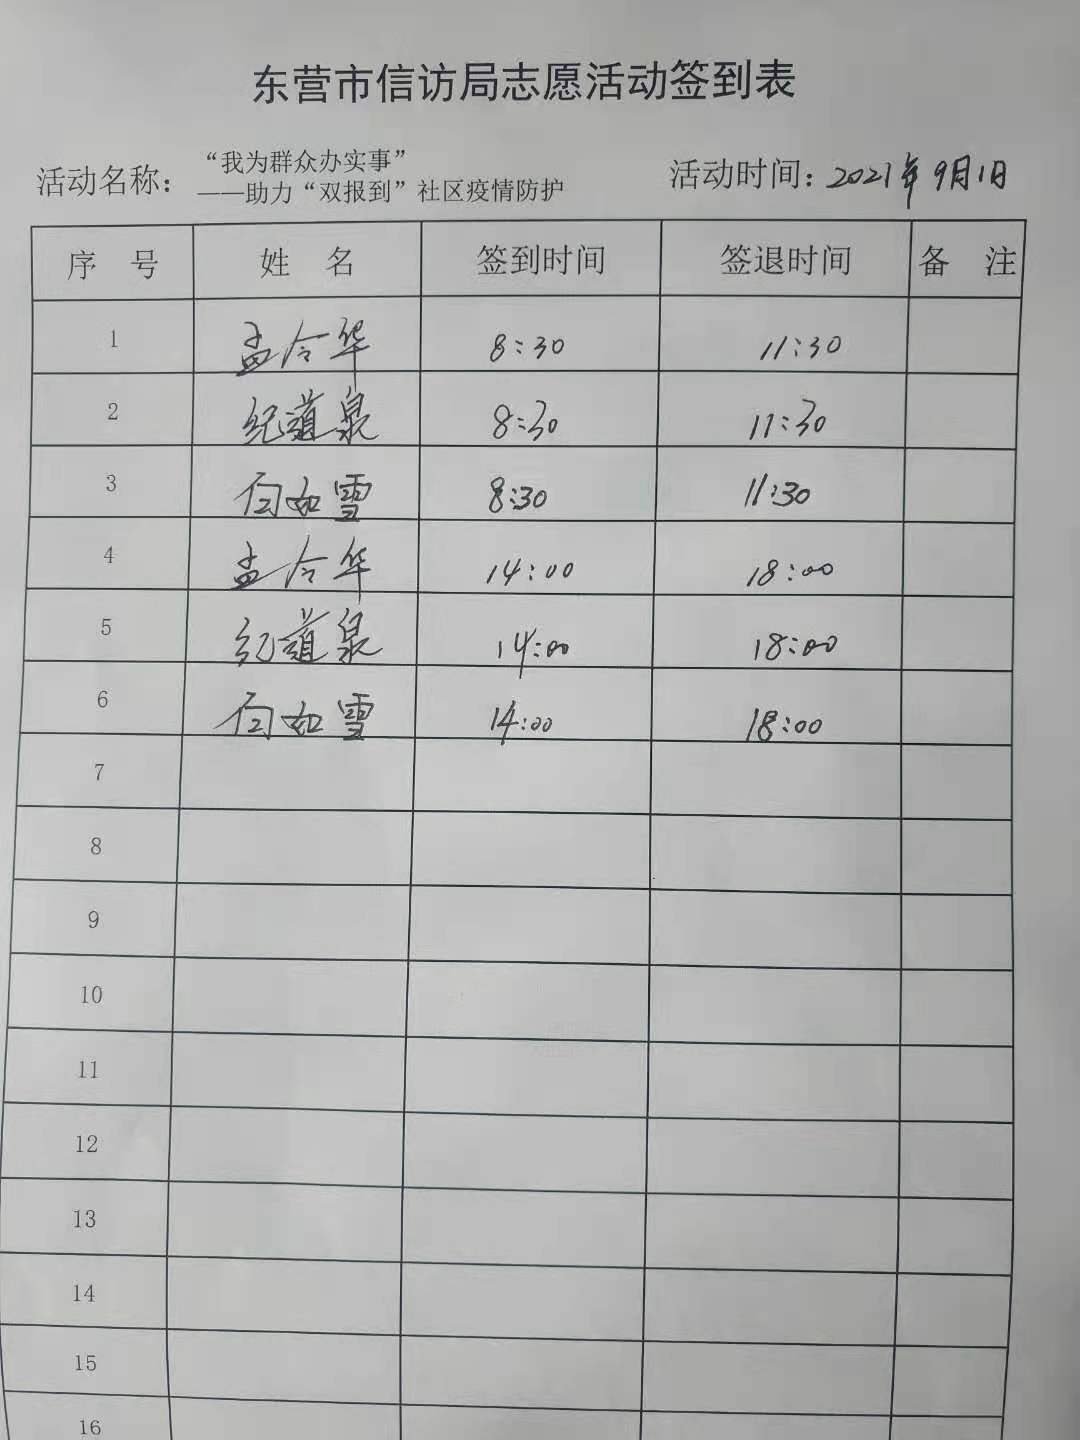 东营市信访局志愿活动签到表
活动名称：“我为群众办实事”
——助力“双报到”社区疫情防护
活动时间：2021年9月1日
序 号 姓 名 签到时间 签退时间 备 注
1 孟令华 8:30 11:30
2 纪道泉 8:30 11:30
3 白如雪 8:30 11:30
4 孟令华 14:00 18:00
5 纪道泉 14:00 18:00
6 白如雪 14:00 18:00
7
8
9
10
11
12
13
14
15
16